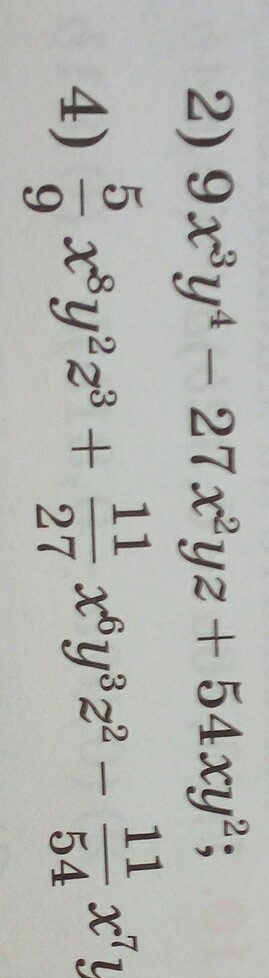 2) 9x³y⁴ − 27x²yz + 54xy²;
4) 5/9 x⁸y²z³ + 11/27 x⁶y³z² − 11/54 x⁷y